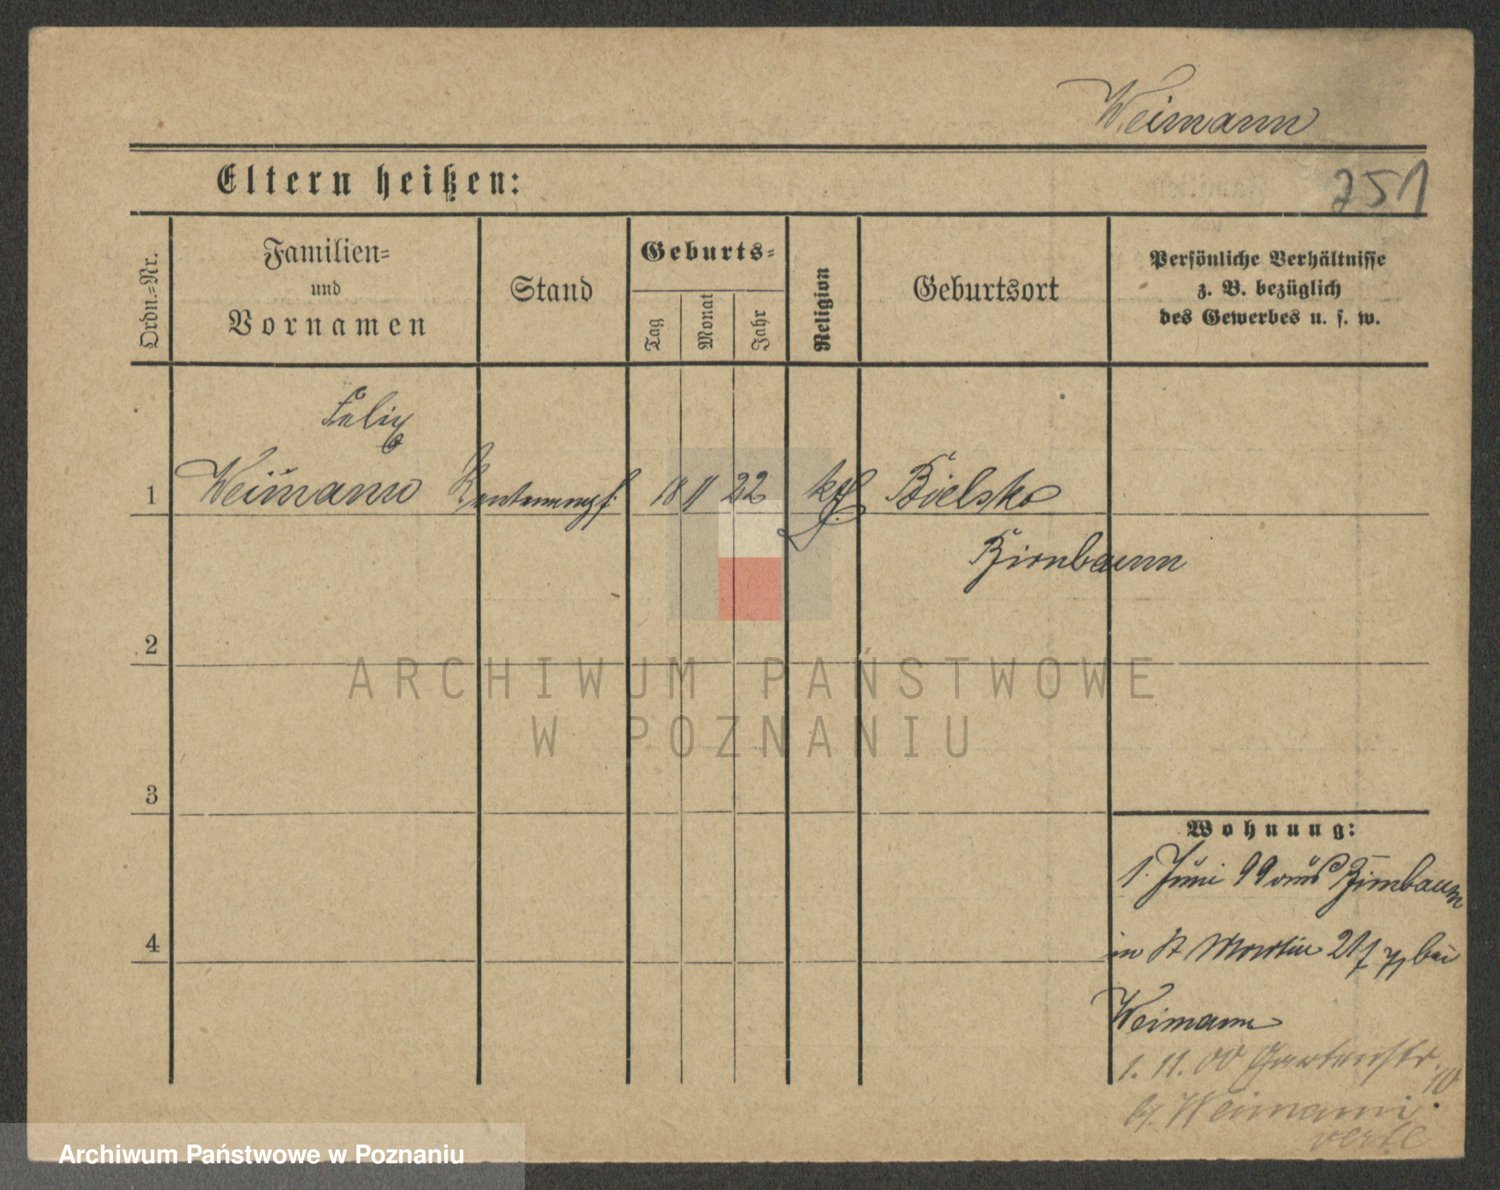 Weimann
Eltern heißen:
251
Ordn.-Nr.
Familien-
und
Vornamen
Stand
Geburts-
Tag
Monat
Jahr
Religion
Geburtsort
Persönliche Verhältnisse
z. B. bezüglich
des Gewerbes u. s. w.
Felix
1 Weimann Rentenempf. 18 11 22 kth Bielsko
Birnbaum
2
ARCHIWUM PAŃSTWOWE
W POZNANIU
3
Wohnung:
1. Juni 99 aus Birnbaum
4
in St Martin 21 bei
Weimann
1. 11. 00 Gartenstr. 10
b/. Weimann.
verte
Archiwum Państwowe w Poznaniu